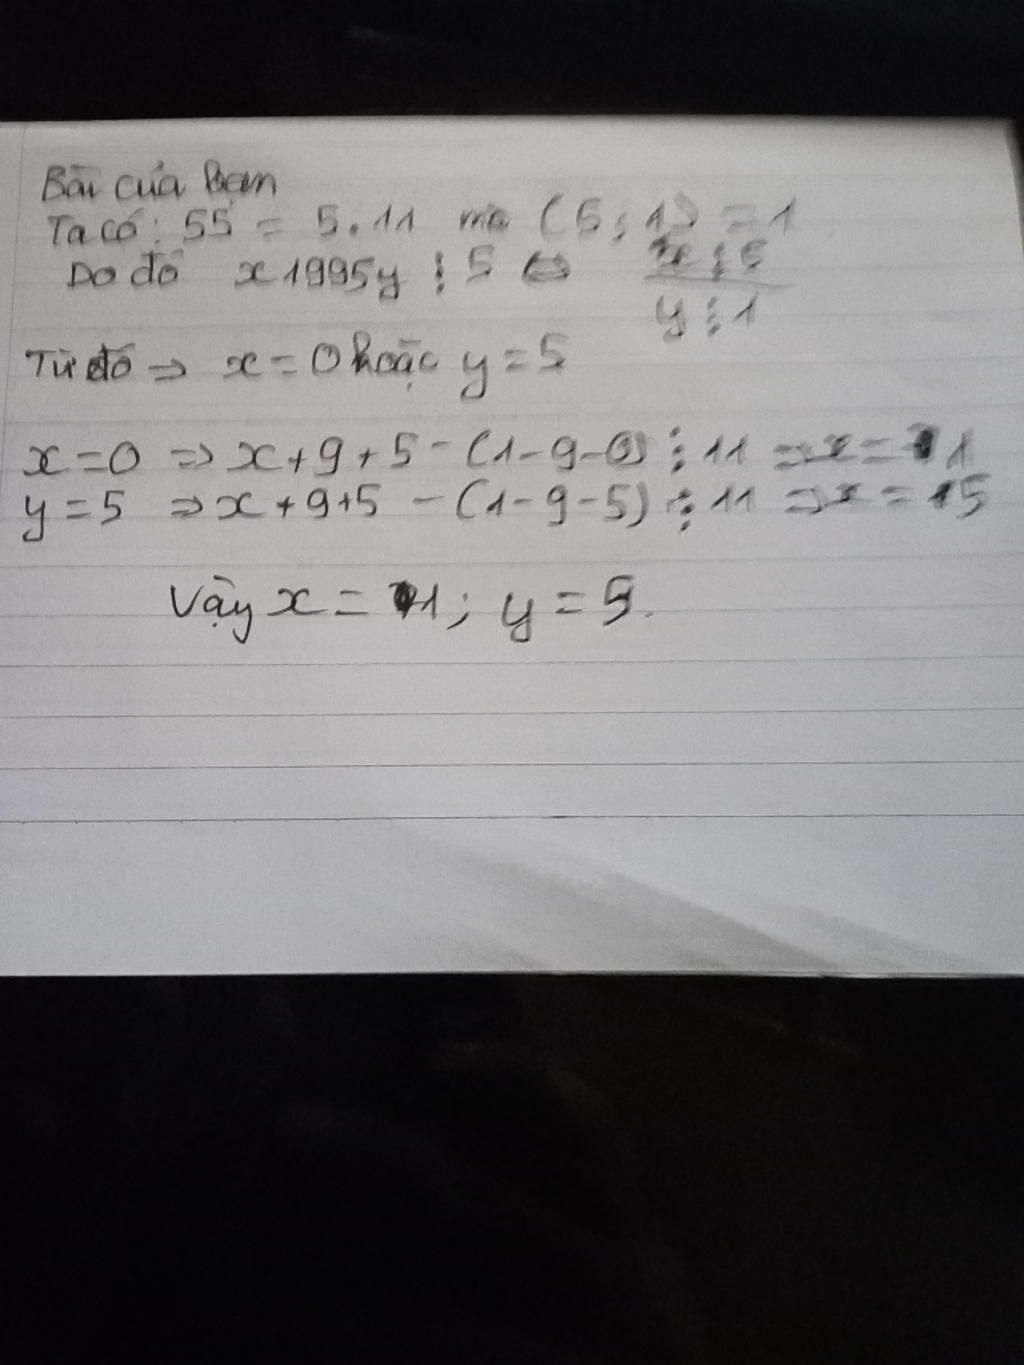 Bài của bạn
Ta có: 55 = 5.11 mà (5;1) = 1
Do đó x1995y ⋮ 5 ⇔
y ⋮ 1
Từ đó ⇒ x = 0 hoặc y = 5
x = 0 ⇒ x + 9 + 5 - (1 - 9 - 0) ⋮ 11 ⇒ x = 1
y = 5 ⇒ x + 9 + 5 - (1 - 9 - 5) ⋮ 11 ⇒ x = 15
Vậy x = 1; y = 5.